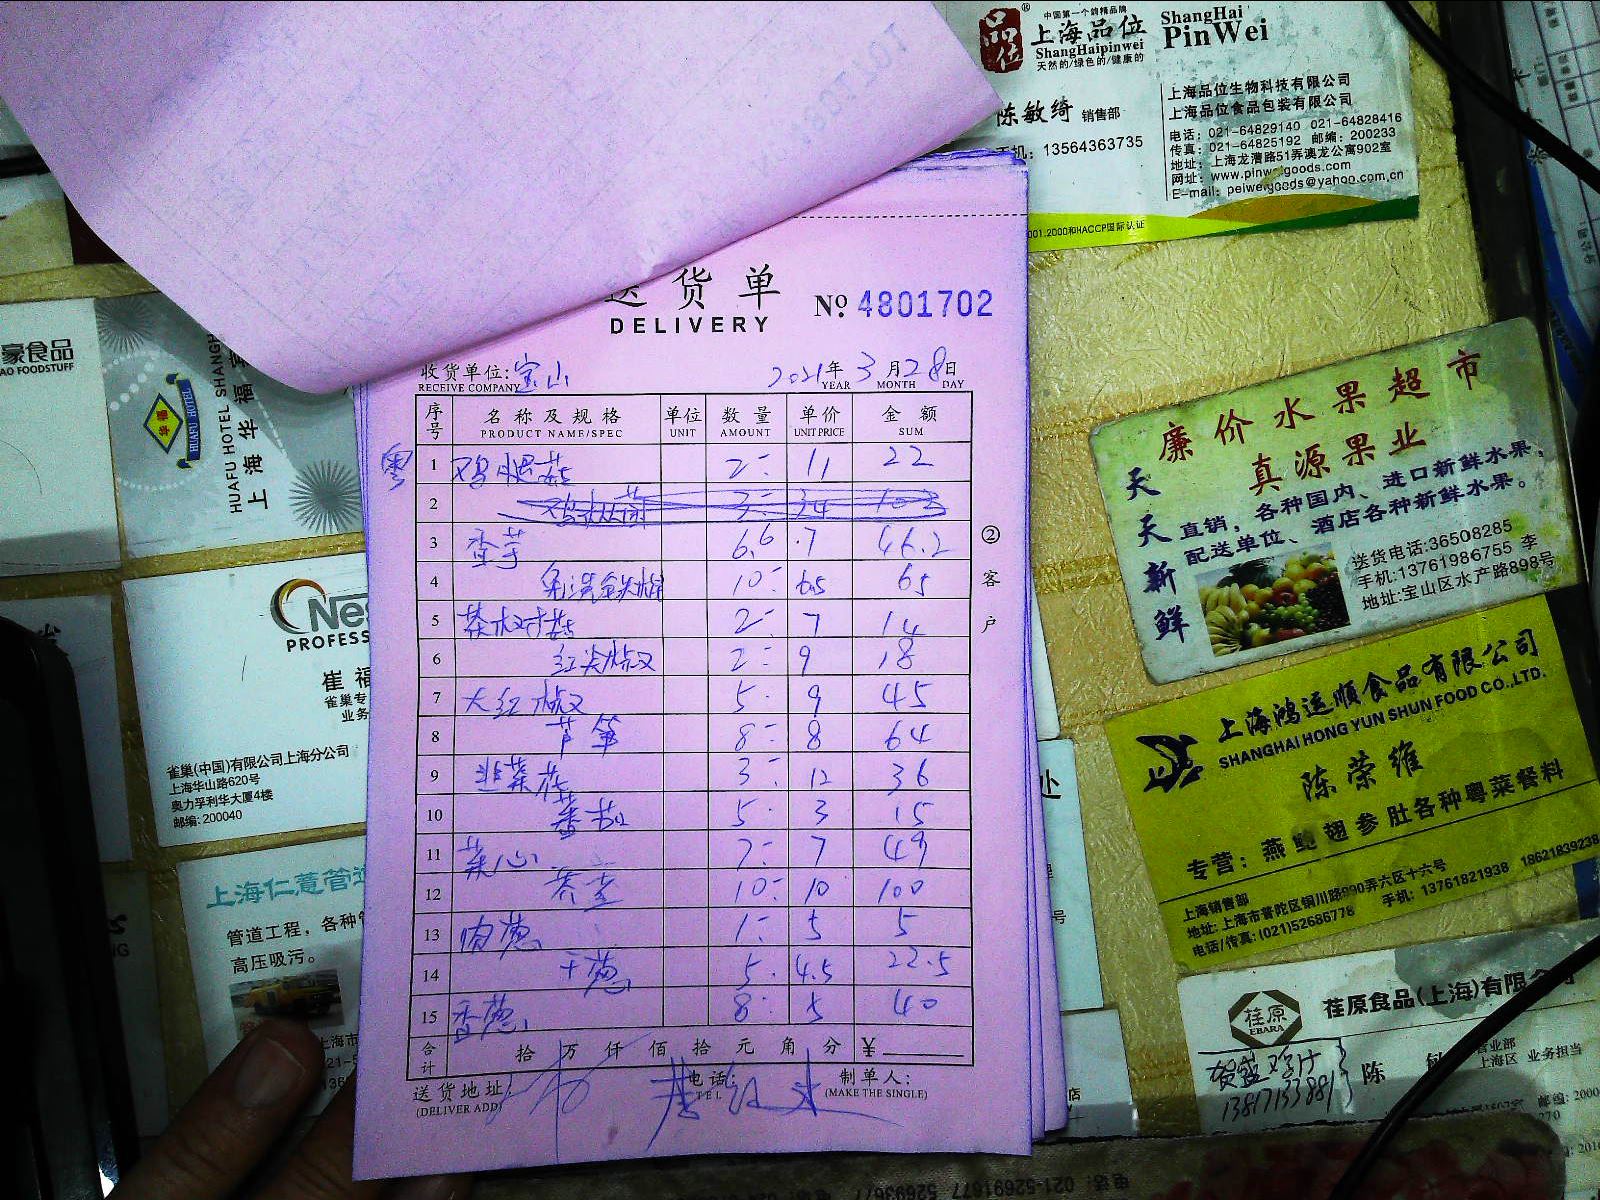 中国第一个鸽精品牌
品位
上海品位
ShangHaipinwei
天然的/绿色的/健康的
ShangHai
PinWei
陈敏绮 销售部
手机: 13564363735
上海品位生物科技有限公司
上海品位食品包装有限公司
电话: 021-64829140 021-64828416
传真: 021-64825192 邮编: 200233
地址: 上海龙漕路51弄澳龙公寓902室
网址: www.pinweigoods.com
E-mail: peiweigoods@yahoo.com.cn
001:2000和HACCP国际认证
送货单
DELIVERY
No. 4801702
收货单位: 宝山
RECEIVE COMPANY
2021年 3月28日
YEAR MONTH DAY
序号 名称及规格 单位 数量 单价 金额
PRODUCT NAME/SPEC UNIT AMOUNT UNIT PRICE SUM
1 鸡腿菇 2 11 22
2
3 香芋 6.6 7 46.2
4 10 6.5 65
5 茶树菇 2 7 14
6 红尖椒 2 9 18
7 大红椒 5 9 45
8 芦笋 8 8 64
9 韭菜花 3 12 36
10 番茄 5 3 15
11 菜心 7 7 49
12 10 10 100
13 肉葱 1 5 5
14 干葱 5 4.5 22.5
15 香葱 8 5 40
合计 拾 万 仟 佰 拾 元 角 分 ¥
送货地址:
(DELIVER ADD)
电话:
TEL
制单人:
(MAKE THE SINGLE)
②客户
豪食品
AO FOODSTUFF
华福
HUAFU HOTEL
HUAFU HOTEL SHANGH
上海华福宾
Nes
PROFESS
崔福
雀巢专
业务
雀巢(中国)有限公司上海分公司
上海华山路620号
奥力孚利华大厦4楼
邮编: 200040
上海仁薏管道
管道工程, 各种管
高压吸污。
廉价水果超市
真源果业
天天新鲜
直销, 各种国内、进口新鲜水果,
配送单位、酒店各种新鲜水果。
送货电话:36508285
手机:13761986755 李
地址:宝山区水产路898号
上海鸿运顺食品有限公司
SHANGHAI HONG YUN SHUN FOOD CO.,LTD.
陈荣维
专营: 燕鲍翅参肚各种粤菜餐料
上海销售部
地址: 上海市普陀区铜川路990弄六区十六号
电话/传真: (021)52686778 手机: 13761821938 18621839238
荏原
EBARA
荏原食品(上海)有限公司
营业部
上海区 业务担当
陈 敏
13817133881
邮编: 2000